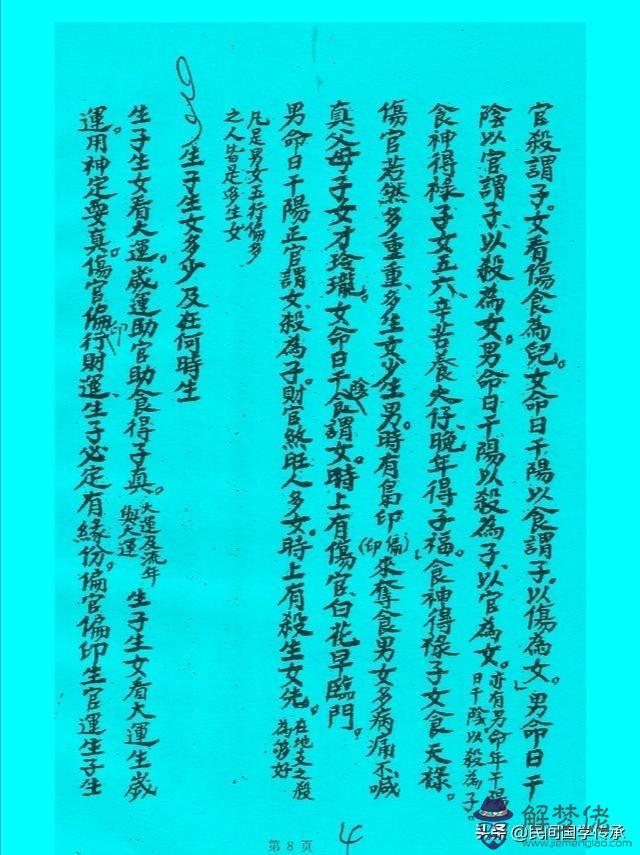 官殺謂子。女看傷食為兒。女命日干陽以食謂子。以傷為女。」男命日干
陰以官謂子、以殺為女。男命日干陽以殺為子、以官為女。亦有男命年干陽
日干陰以殺為子。
食神得祿子女五六、辛苦養大仔、晚年得子福。「食神得祿子女食天祿。
傷官若然多重重、多生女少生男。時有梟印(偏印)來奪食男女多病痛不喊
真父母子女才玲瓏。女命日干陰食謂女。時上有傷官、白花早臨門。
男命日干陽正官謂女、殺為子。財官煞旺人多女。時上有殺生女先。在地支之殺
為夠好
凡是男女五行偏多
之人皆是多生女
99 生子生女多少及在何時生
生子生女看大運。歲運助官助食得子真。大運及流年
與大運
生子生女看大運生歲
運。用神定要真。傷官偏印行財運、生子必定有緣份。偏官偏印生官運生子生
第 8 頁
4
头条 @民间国学传承
解梦佬
www.jiemenglao.com